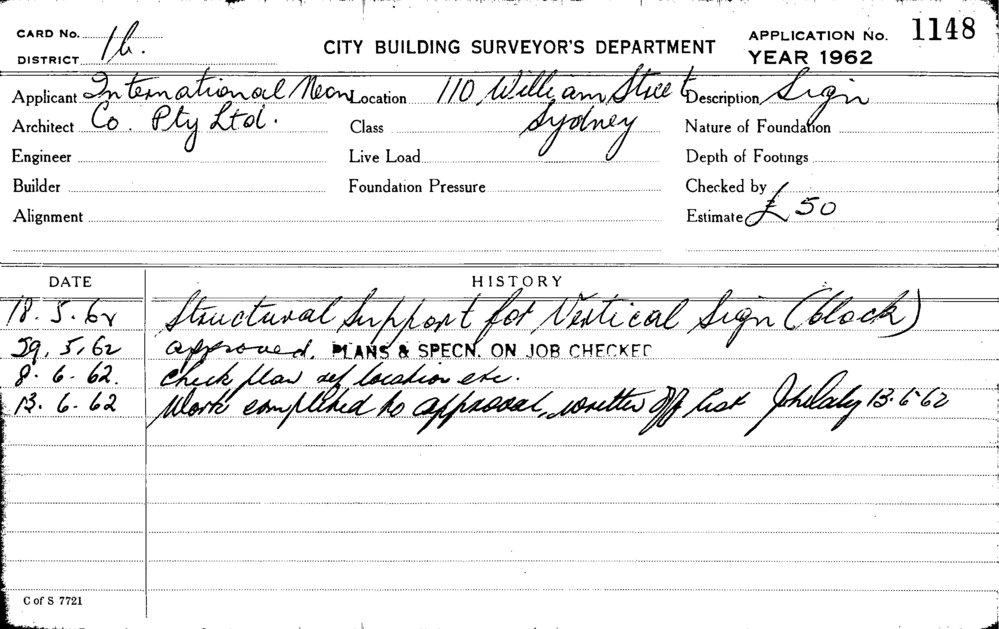 CARD No.
DISTRICT 1b.
CITY BUILDING SURVEYOR'S DEPARTMENT
APPLICATION No. 1148
YEAR 1962
Applicant International Neon Location 110 William Street Description Sign
Architect Co. Pty Ltd. Class Sydney Nature of Foundation
Engineer Live Load Depth of Footings
Builder Foundation Pressure Checked by
Alignment Estimate £ 50
DATE HISTORY
18.5.62 Structural Support for Vertical Sign (block)
29.5.62 approved. PLANS & SPECN. ON JOB CHECKED
8.6.62. Check plan ref location etc.
13.6.62 Work completed to approval, written off list 13.6.62
C of S 7721